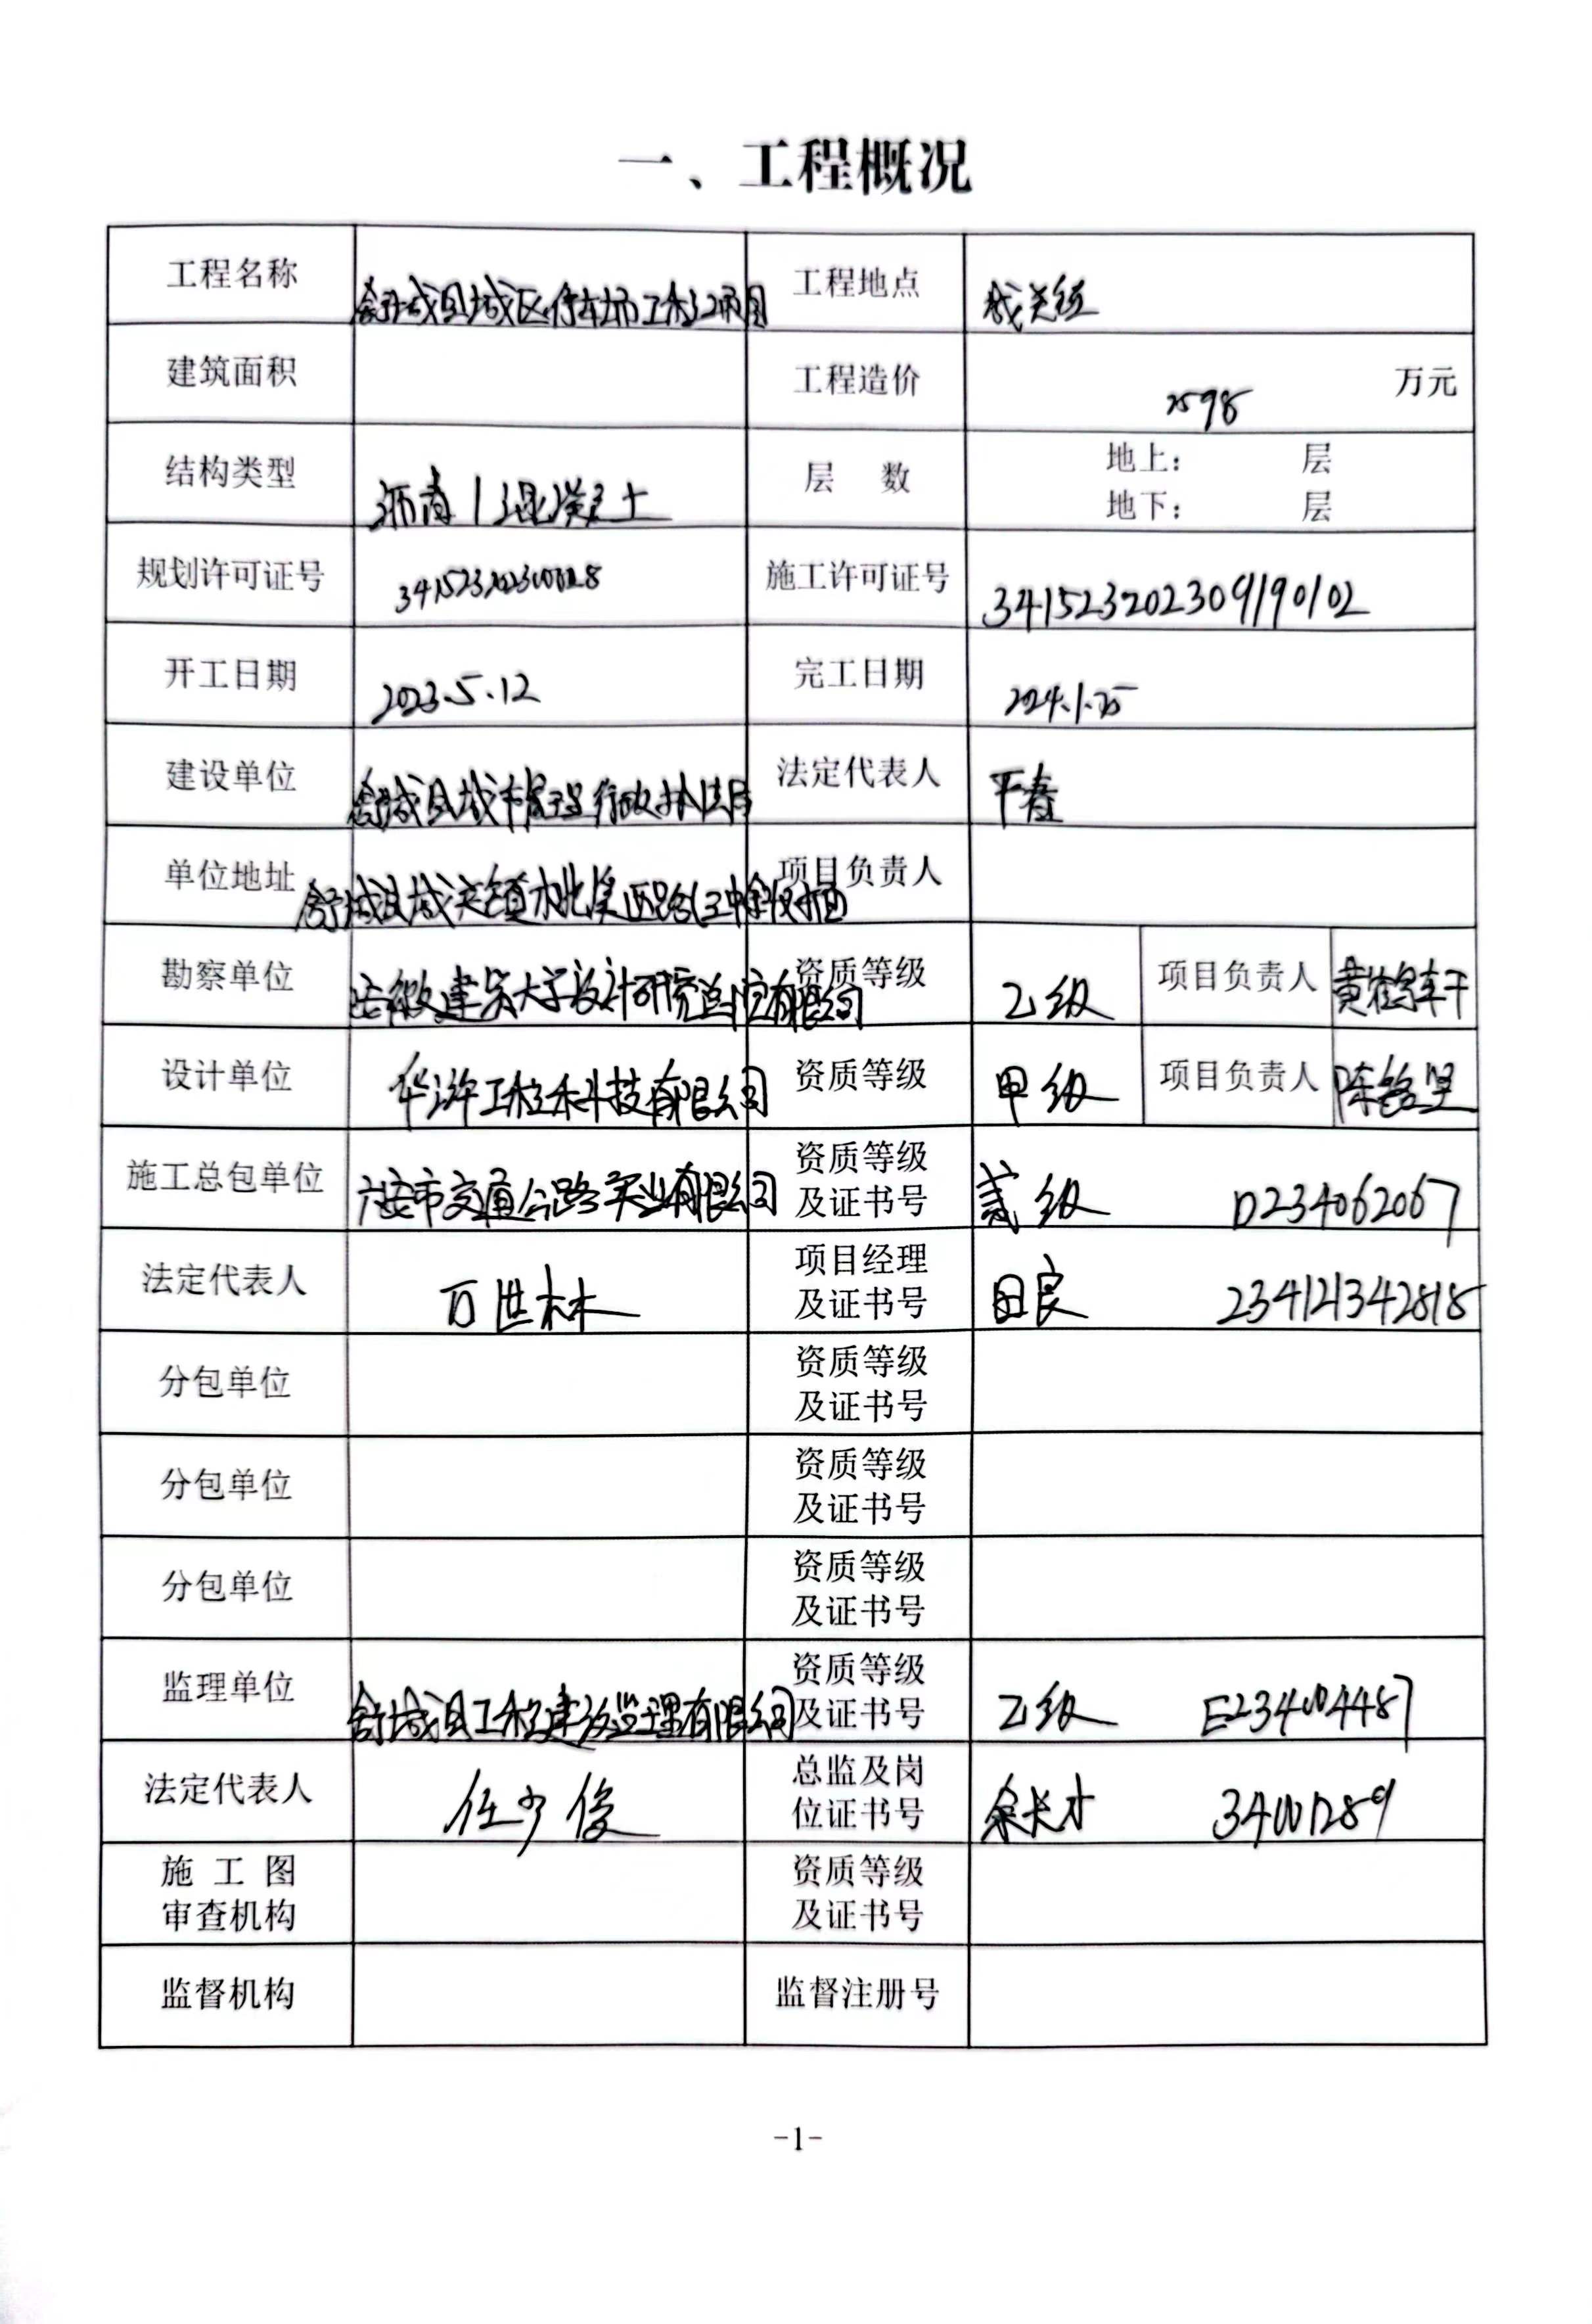 一、工程概况
工程名称 舒城县城区停车场工程项目 工程地点 城关镇
建筑面积 工程造价 2598 万元
结构类型 沥青/混凝土 层 数 地上： 层
地下： 层
规划许可证号 施工许可证号 341523202309190102
开工日期 2023.5.12 完工日期 2024.1.25
建设单位 舒城县城市管理行政执法局 法定代表人 平春
单位地址 舒城县城关镇 项目负责人
勘察单位 安徽建筑大学设计研究总院有限公司 资质等级 乙级 项目负责人
设计单位 华汴工程科技有限公司 资质等级 甲级 项目负责人 陈铭里
施工总包单位 六安市交通公路实业有限公司 资质等级
及证书号 贰级 D234062067
法定代表人 万世林 项目经理
及证书号 田良 234121342818
分包单位 资质等级
及证书号
分包单位 资质等级
及证书号
分包单位 资质等级
及证书号
监理单位 舒城县工程建设监理有限公司 资质等级
及证书号 乙级 E234004487
法定代表人 任少俊 总监及岗
位证书号 余长才 34001289
施 工 图
审查机构 资质等级
及证书号
监督机构 监督注册号
-1-